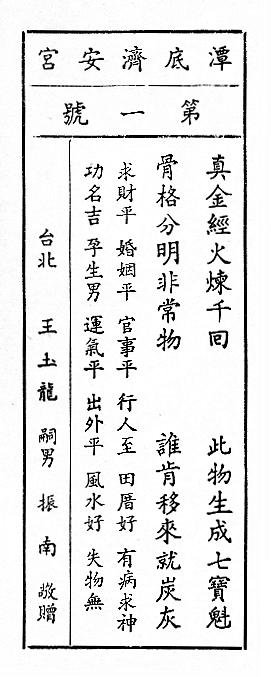 潭底濟安宮
第一號
真金經火煉千回 此物生成七寶魁
骨格分明非常物 誰肯移來就炭灰
求財平 婚姻平 官事平 行人至 田厝好 有病求神
功名吉 孕生男 運氣平 出外平 風水好 失物無
台北 王土龍 嗣男 振南 敬贈